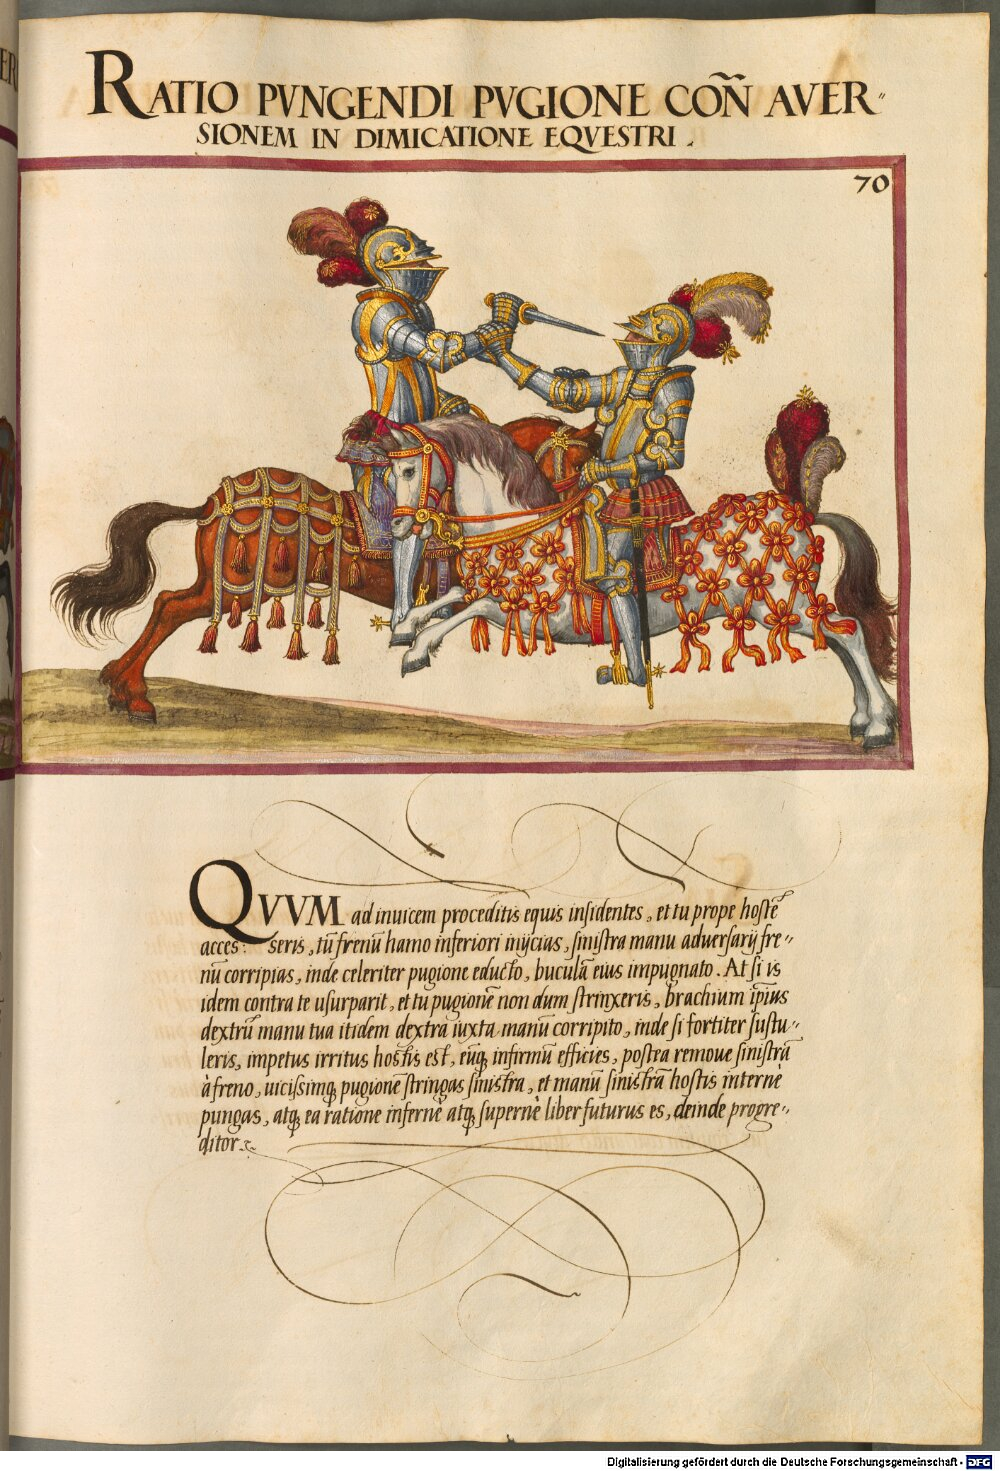 RATIO PVNGENDI PVGIONE COÑ AVER„
SIONEM IN DIMICATIONE EQVESTRI.
70
QVVM ad inuicem proceditis equis insidentes, et tu prope hostē
acces: seris, tū frenū hamo inferiori inijcias, sinistra manu adversarij fre„
nū corripias, inde celeriter pugione educto, buculā eius impugnato. At si is
idem contra te usurparit, et tu pugionē non dum strinxeris, brachium ip̄ius
dextrū manu tua itidem dextra iuxta manū corripito, inde si fortiter sustu„
leris, impetus irritus hostis est, eūq; infirmū efficies, postea remoue sinistrā
à freno, uicissimq; pugionē stringas sinistra, et manū sinistrā hostis internè
pungas, atq; ea ratione infernè atq; supernè liber futurus es, deinde progre„
ditor.
Digitalisierung gefördert durch die Deutsche Forschungsgemeinschaft - DFG